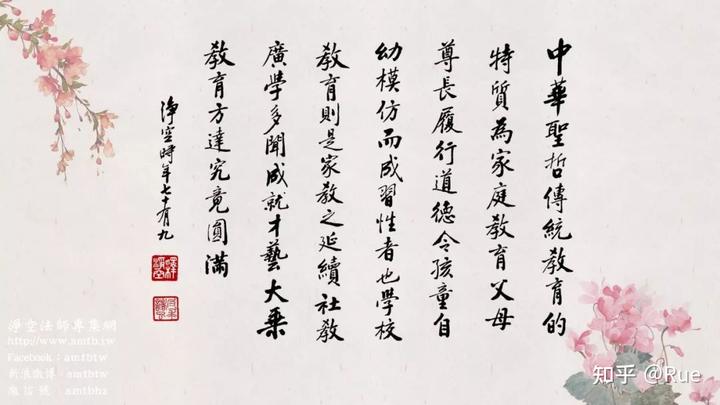 中華聖哲傳統教育的
特質為家庭教育父母
尊長履行道德令孩童自
幼模仿而成習性者也學校
教育則是家教之延續社教
廣學多聞成就才藝大乘
教育方達究竟圓滿
淨空時年七十有九
淨空法師專集網
http://www.amfb.tw
Facebook：amfbtw
新浪微博：amtbtw
微信號：amtbhz
知乎 @Rue